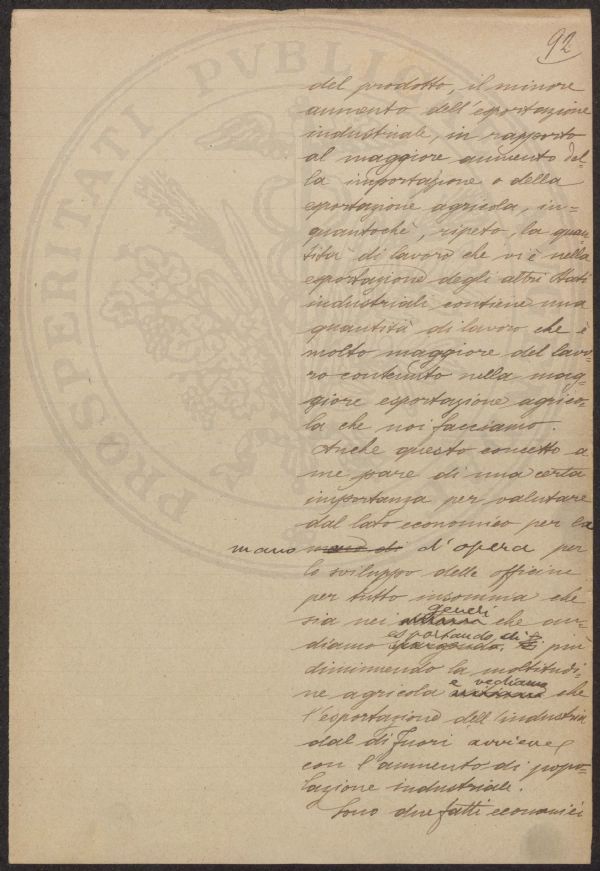 92
PROSPERITATI PVBLIC
del prodotto, il minore
aumento dell'esportazione
industriale, in rapporto
al maggiore aumento del-
la importazione o della
esportazione agricola, in-
quantochè, ripeto, la quan-
tità di lavoro che vi è nella
esportazione degli altri Stati
industriali contiene una
quantità di lavoro che è
molto maggiore del lavo-
ro contenuto nella mag-
giore esportazione agrico-
la che noi facciamo.
Anche questo concetto a
me pare di una certa
importanza per valutare
dal lato economico per la
mano mano di d'opera per
lo sviluppo delle officine
per tutto insomma che
sia nei generi che an-
diamo esportando, di più
diminuendo la moltitudi-
ne agricola e vediamo che
l'esportazione dell'industria
dal di fuori avviene
con l'aumento di popo-
lazione industriale.
Sono due fatti economici